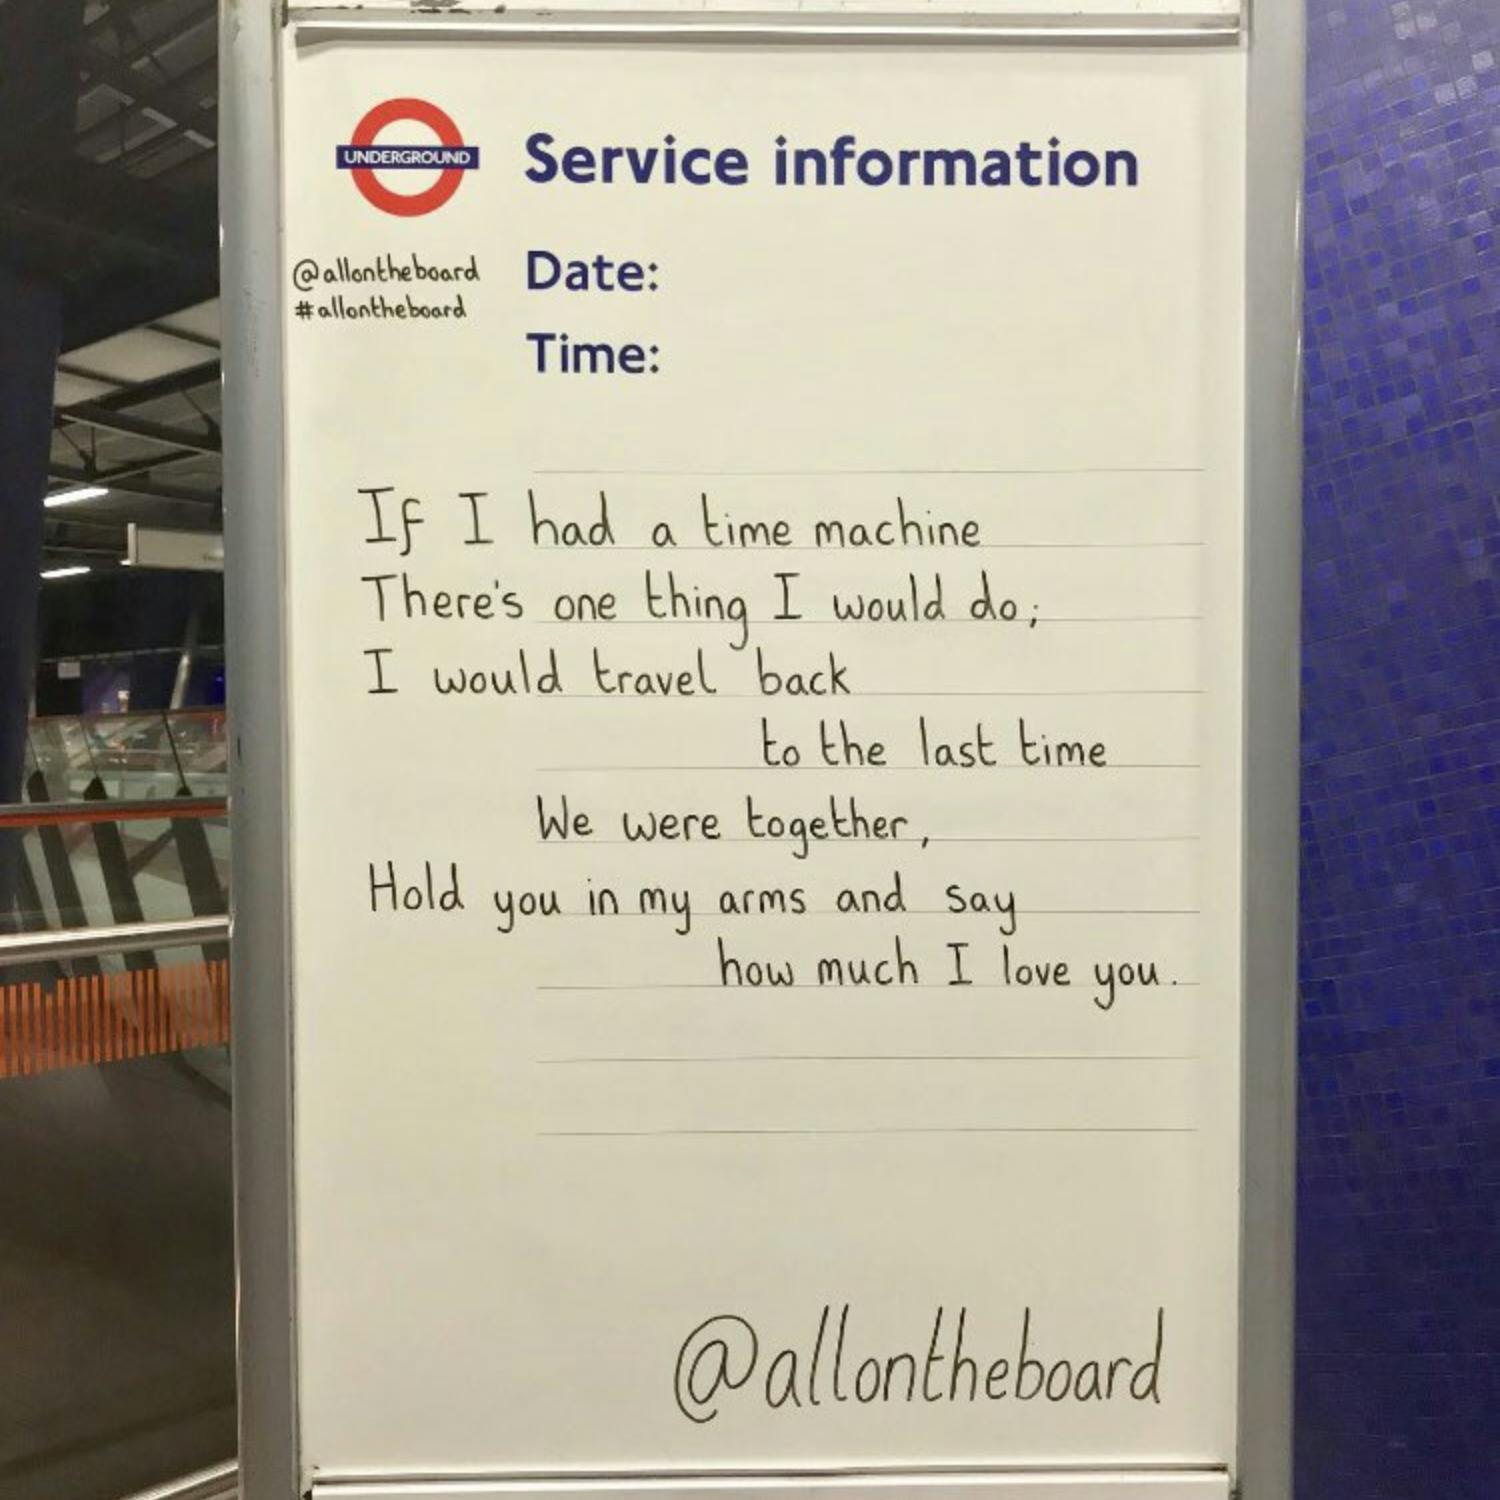 UNDERGROUND
Service information
@allontheboard
#allontheboard
Date:
Time:
If I had a time machine
There's one thing I would do;
I would travel back
to the last time
We were together,
Hold you in my arms and say
how much I love you.
@allontheboard